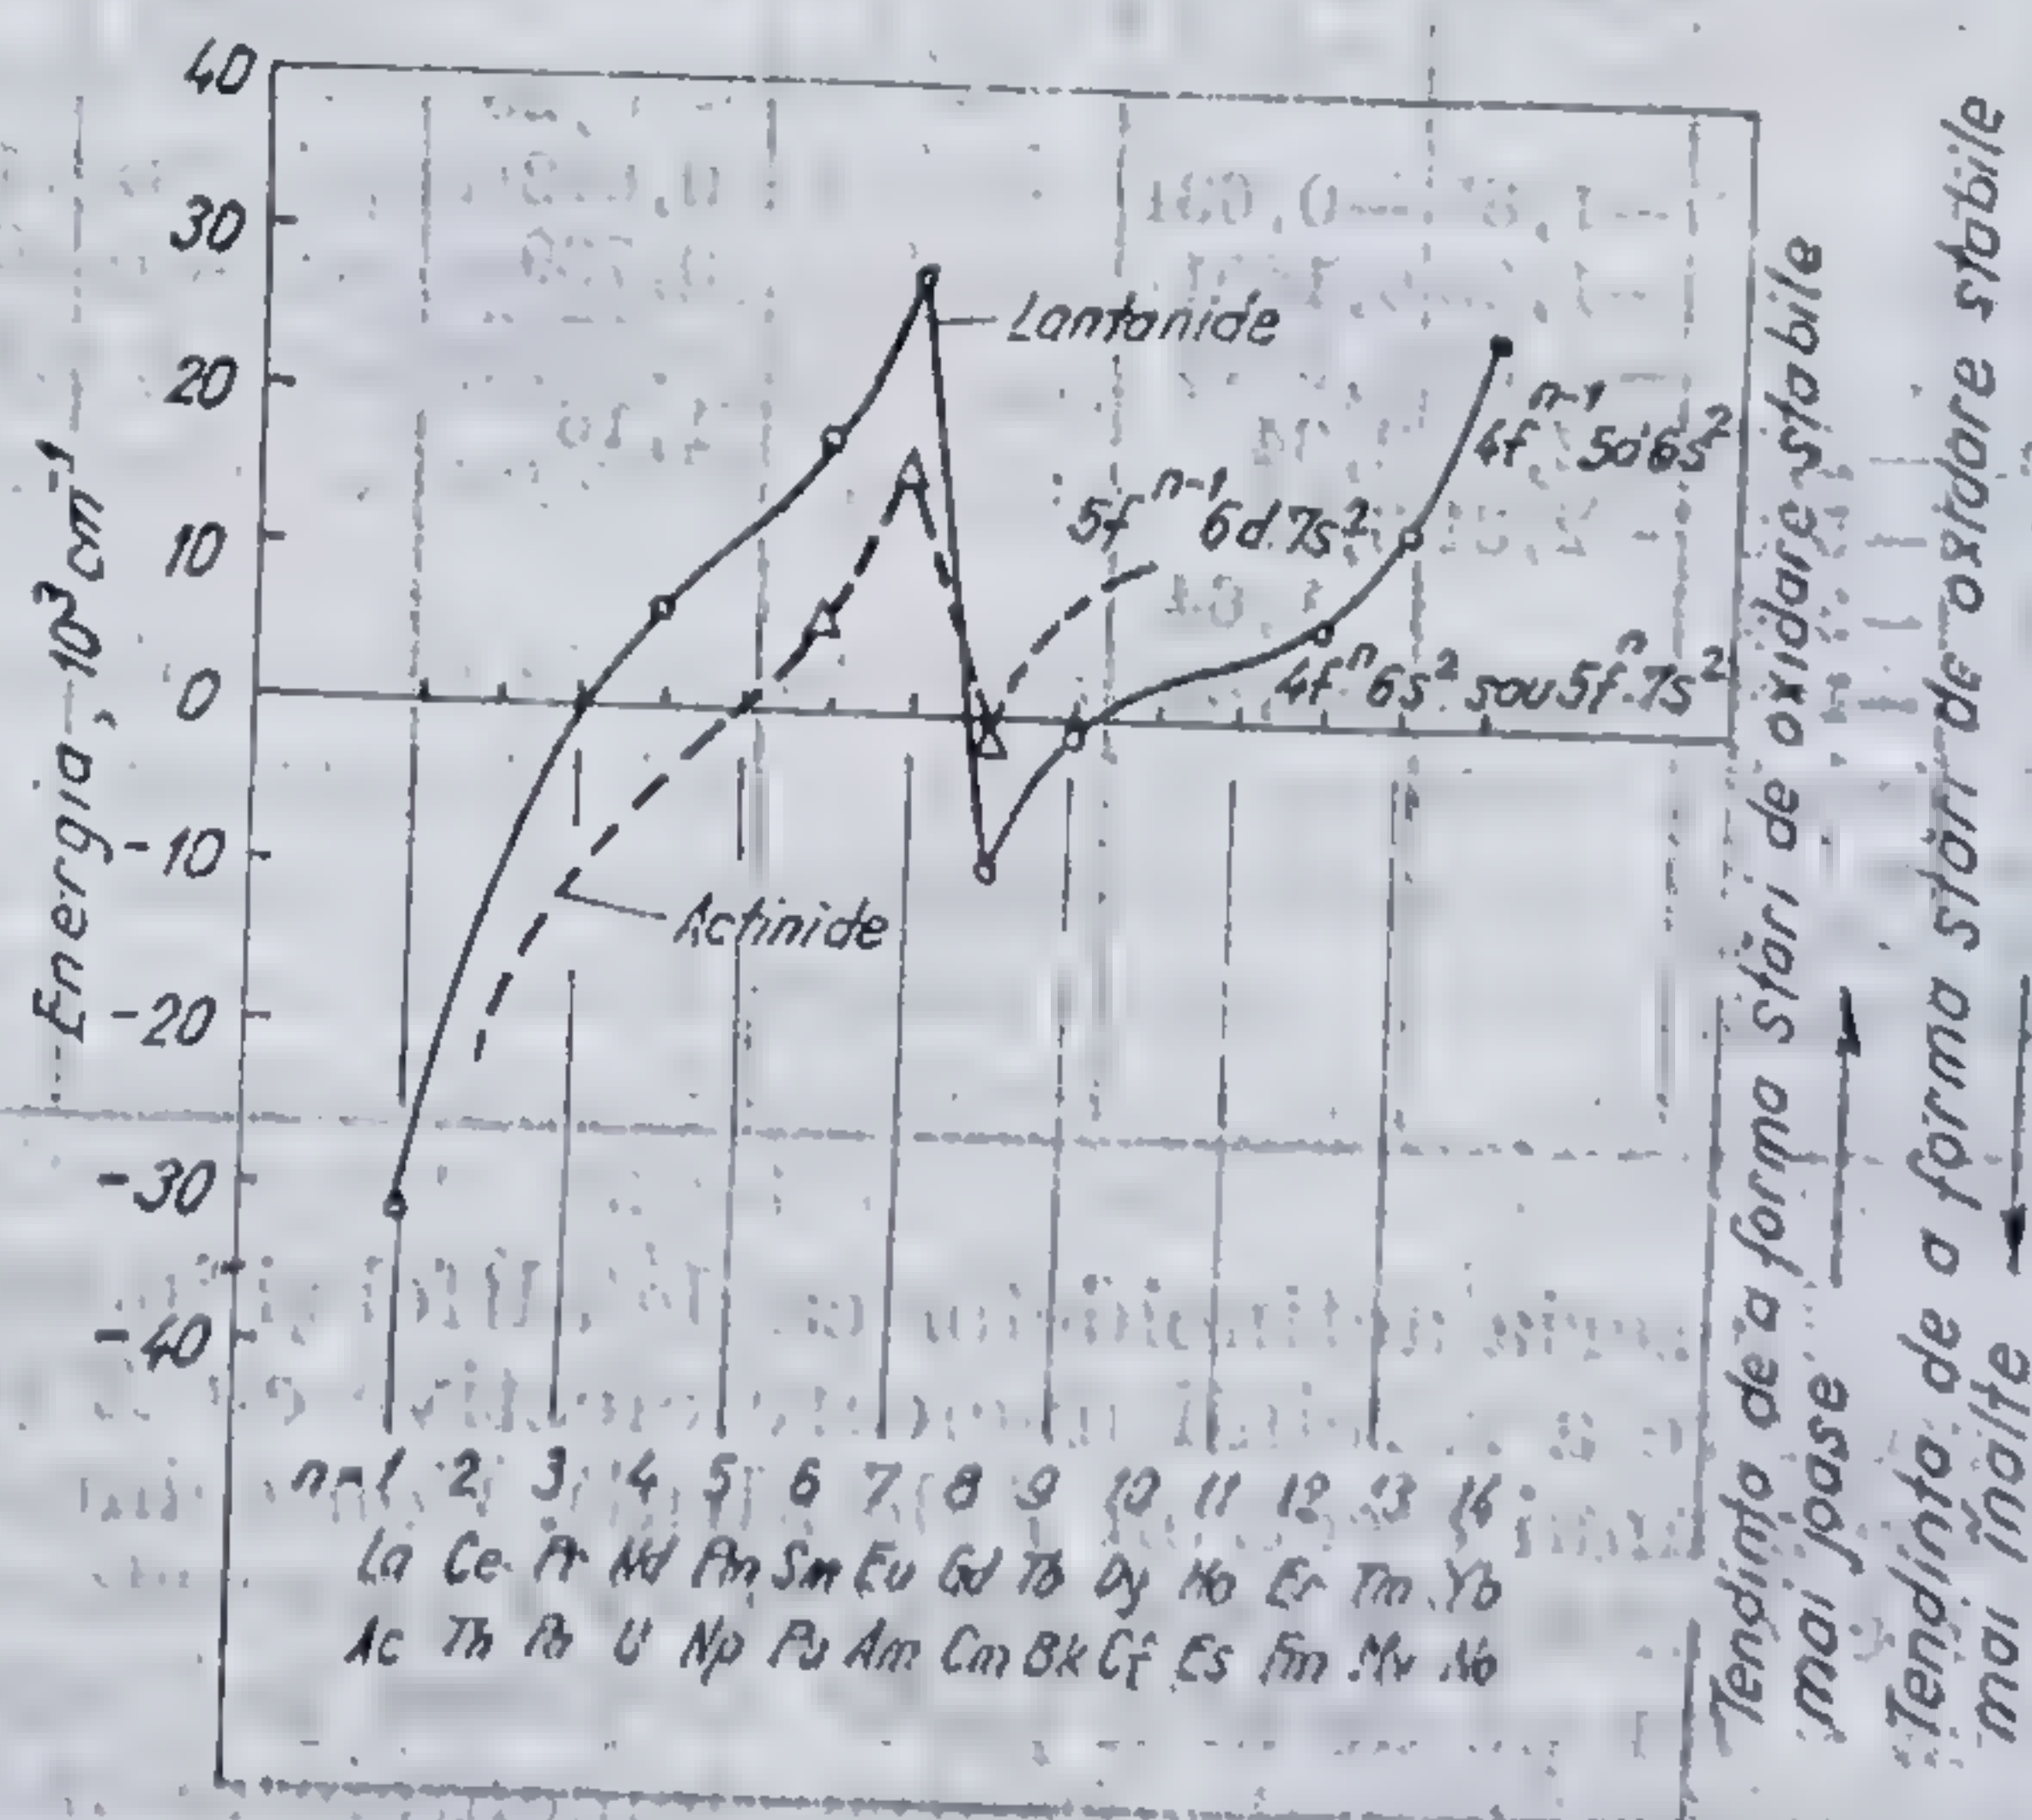 40
30
20
10
0
-10
-20
-30
-40
Energia, 10³ cm⁻¹
Lantanide
4fⁿ⁻¹ 5d¹6s²
5fⁿ⁻¹ 6d.7s²
4fⁿ6s² sau 5fⁿ.7s²
Actinide
n=1 2 3 4 5 6 7 8 9 10 11 12 13 14
La Ce Pr Nd Pm Sm Eu Gd Tb Dy Ho Er Tm Yb
Ac Th Pa U Np Pu Am Cm Bk Cf Es Fm Mv No
Tendința de a forma stări de oxidare stabile
mai joase
Tendința de a forma stări de oxidare stabile
mai înalte